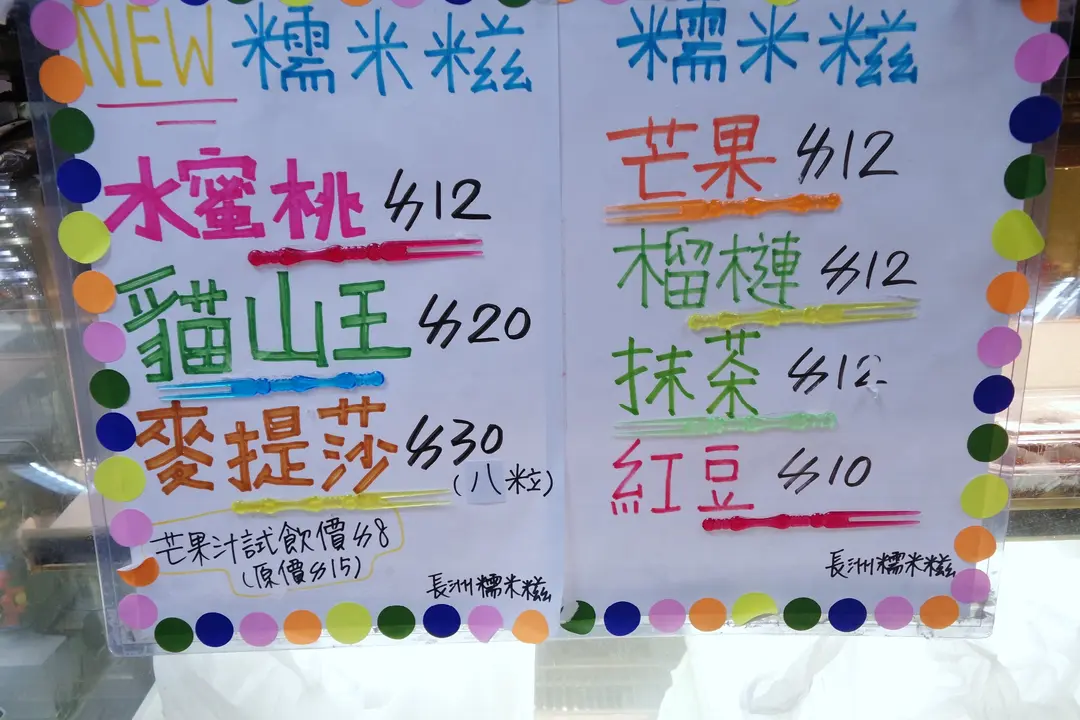 NEW 糯米糍
水蜜桃 $12
貓山王 $20
麥提莎 $30
(八粒)
芒果汁試飲價$8
(原價$15)
長洲糯米糍
糯米糍
芒果 $12
榴槤 $12
抹茶 $12
紅豆 $10
長洲糯米糍